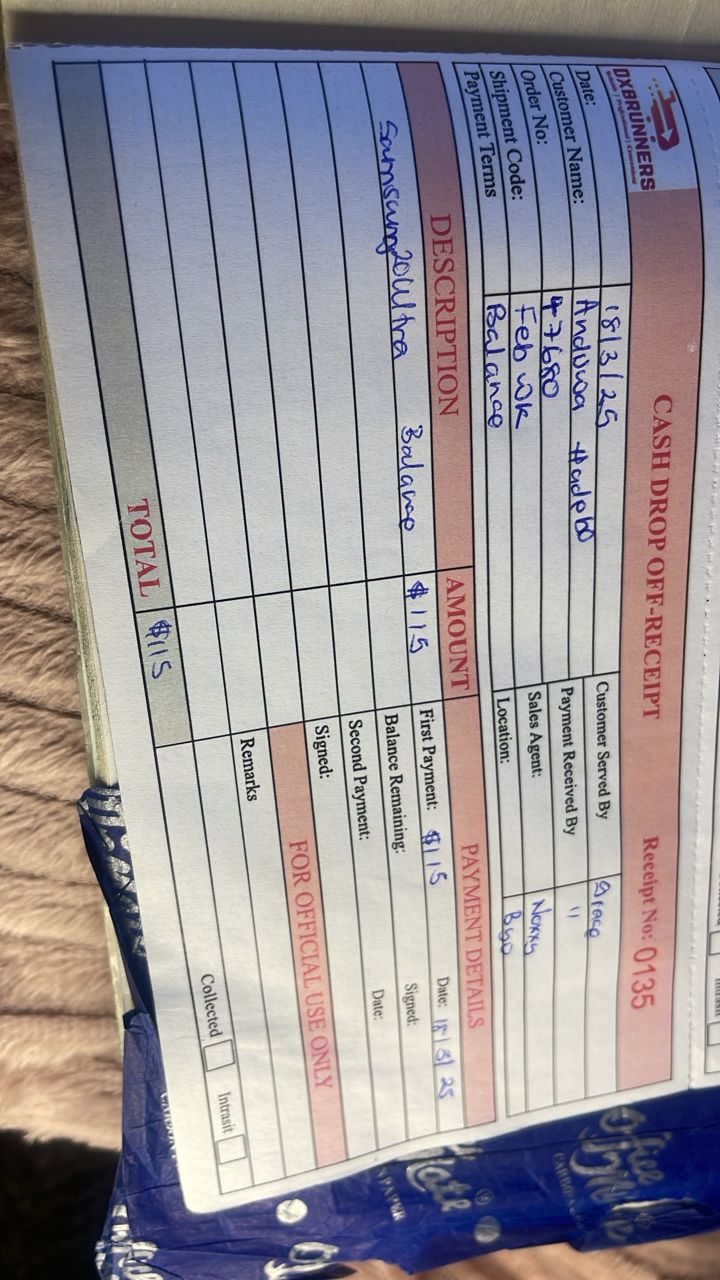 DXBRUNNERS
CASH DROP OFF-RECEIPT Receipt No: 0135
Date: 18/3/25
Customer Name: Anduwa
Order No: 47680
Shipment Code: Feb wk
Payment Terms Balance
Customer Served By Grace
Payment Received By "
Sales Agent: Noxxy
Location: Byo
DESCRIPTION AMOUNT PAYMENT DETAILS
Samsung 20 Ultra Balance $115
First Payment: $115 Date: 18/3/25
Balance Remaining: Signed:
Second Payment: Date:
Signed:
FOR OFFICIAL USE ONLY
Remarks
Collected Intrasit
TOTAL $115
Intrasit
Office